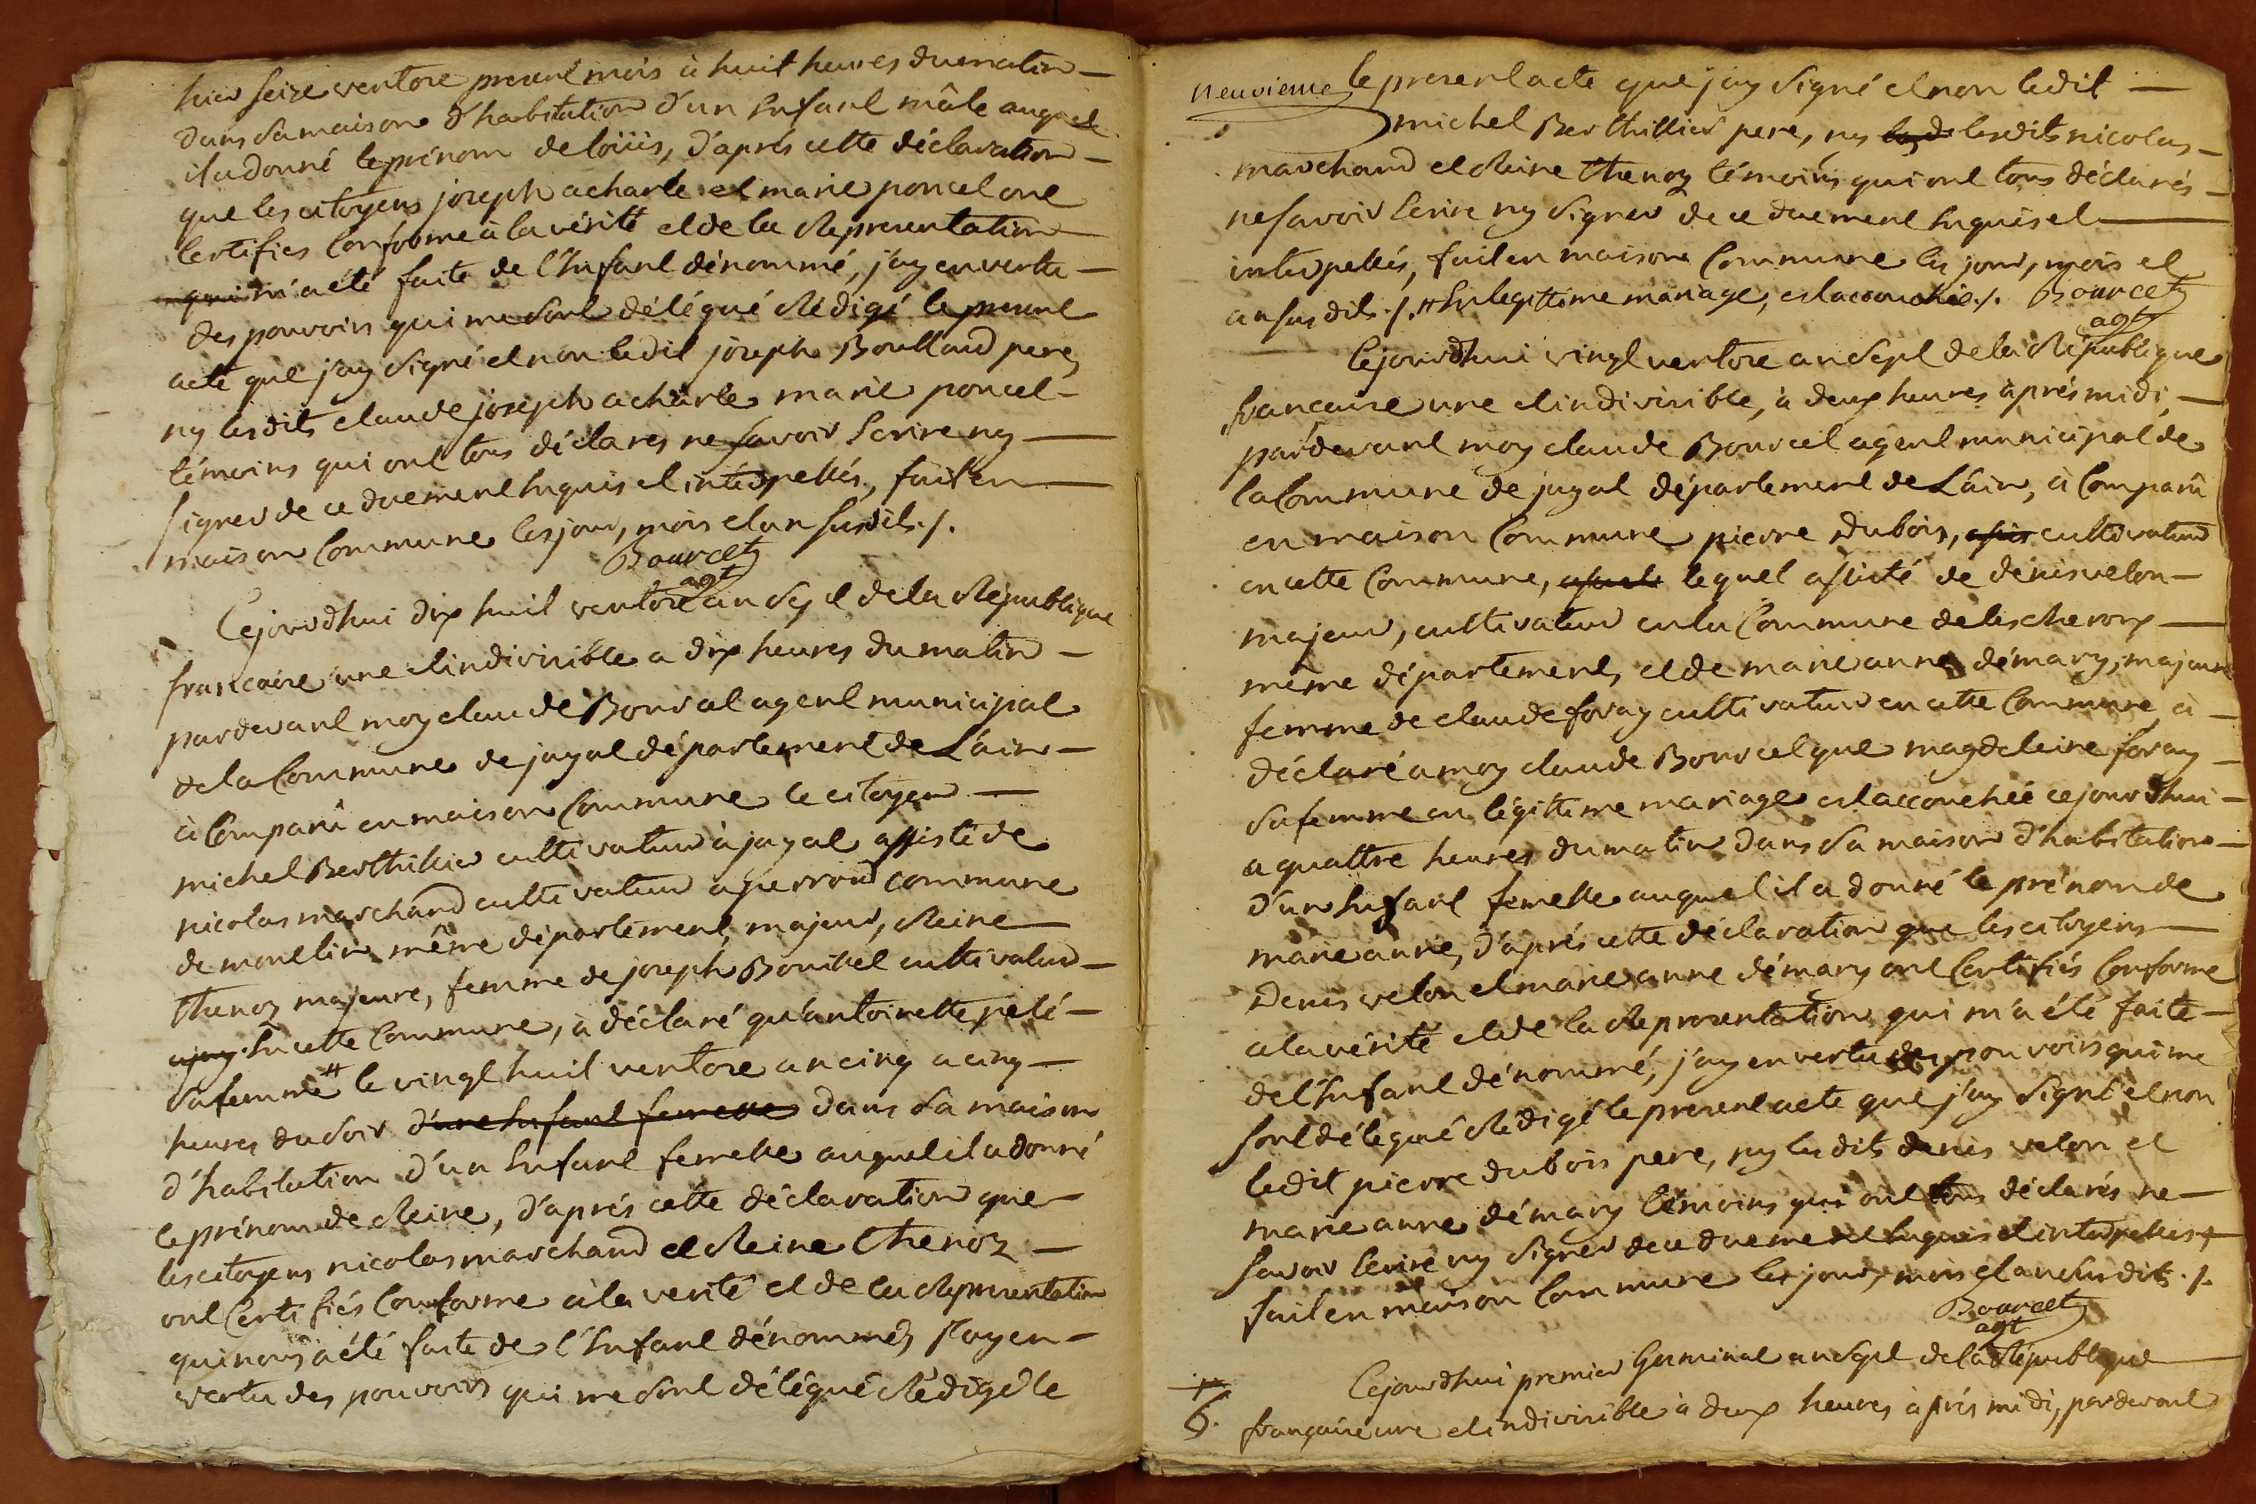 hier seize ventose present mois à huit heures du matin —
dans sa maison d'habitation d'un Enfant mâle auquel
il a donné le prénom de loüis, d'aprés cette déclaration —
que les citoyens joseph acharle et marie poncet ont
Certifies Conforme à la vérité et de la Representation
qui m'a eté faite de l'Enfant dénommé, j'ay en vertu —
des pouvoirs qui me sont délégué Rédigé le present
acte que j'ay signé et non ledit joseph Boullard pere,
ny lesdits claude joseph acharle marie poncet -
témoins qui ont tous déclarés ne savoir Ecrire ny —
signer de ce duement Enquis et intérpellés, fait en —
maison Commune les jour, mois et an susdits ./.
Bourcet
agt
Cejourdhui dix huit ventose an sept de la Republique
francaise une et indivisible a dix heures du matin —
pardevant moy claude Bourcet agent municipal
de la Commune de jayat département de L'ain —
à Comparû en maison Commune le citoyen —
michel Berthillier cultivateur à jayat assisté de
nicolas marchand cultivateur a perroud commune
de montlin même département, majeur, Reine —
thenoz majeure, femme de joseph Bouibet cultivateur —
ajay En cette Commune, à déclaré qu'antoinette peté —
sa femme # le vingt huit ventose an cinq a cinq —
heures du soir d'une Enfant femelle dans sa maison
d'habitation d'un Enfant femelle auquel il a donné
le prénom de Reine, d'aprés cette déclaration que —
les citoyens nicolas marchand et Reine thenoz —
ont Certifiés Conforme à la verité et de la Representation
qui nous a été faite de l'Enfant dénommé, j'ay en —
vertu des pouvoirs qui me sont délégué Rédigé le
neuvieme le present acte que j'ay signé et non ledit —
michel Berthillier pere, ny lesd lesdits nicolas —
marchand et Reine thenoz témoins qui ont tous déclarés —
ne savoir Ecrire ny signer de ce duement Enquis et —
interpellés, fait en maison Commune les jour, mois et
an susdits ./. # En legittime mariage, est accouchée ./. Bourcet
agt
Cejourdhui vingt ventose an sept de la Republique
francaise une et indivisible, à deux heures aprés midi, —
pardevant moy claude Bourcet agent municipal de
la Commune de jayat département de L'ain, à Comparû
en maison Commune pierre Dubois, assis cultivateur
en cette Commune, lequel assisté de denis velon —
majeur, cultivateur en la Commune de lescheroux —
même département, et de marie anne démary, majeure
femme de claude foray cultivateur en cette Commune, à —
déclaré a moy claude Bourcet que magdeleine foray —
sa femme en légittime mariage est accouchée cejourdhui —
a quattre heures du matin dans sa maison d'habitation —
d'un Enfant femelle auquel il a donné le prénom de
marie anne, d'aprés cette déclaration que les citoyens —
Denis velon et marie anne démary ont Certifiés Conforme
a la vérité et de la Representation qui m'a été faite —
de l'Enfant dénommé, j'ay en vertu des pouvoirs qui me
sont délégué Rédigé le present acte que j'ay signé et non
ledit pierre dubois pere, ny lesdits denis velon et
marie anne démary témoins qui ont tous déclarés ne —
savoir Ecrire ny signer de ce duement Enquis et interpellés
fait en maison Commune les jour, mois et an susdits ./.
Bourcet
agt
Cejourdhui premier Germinal an sept de la Republique
française une et indivisible à deux heures aprés midi, pardevant